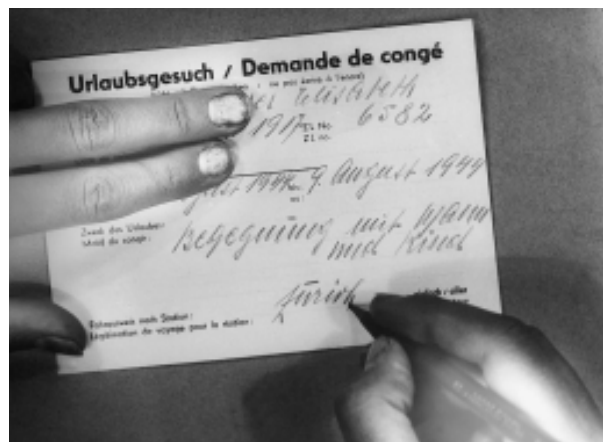 Urlaubsgesuch / Demande de congé
Elisabeth
1917 Zl. No. 6582
Zl. no.
August 1944 9. August 1944
Zweck des Urlaubes:
Motif du congé: Begegnung mit Mann
und Kind
Zürich
Fahrausweis nach Station:
Légitimation de voyage pour la station: